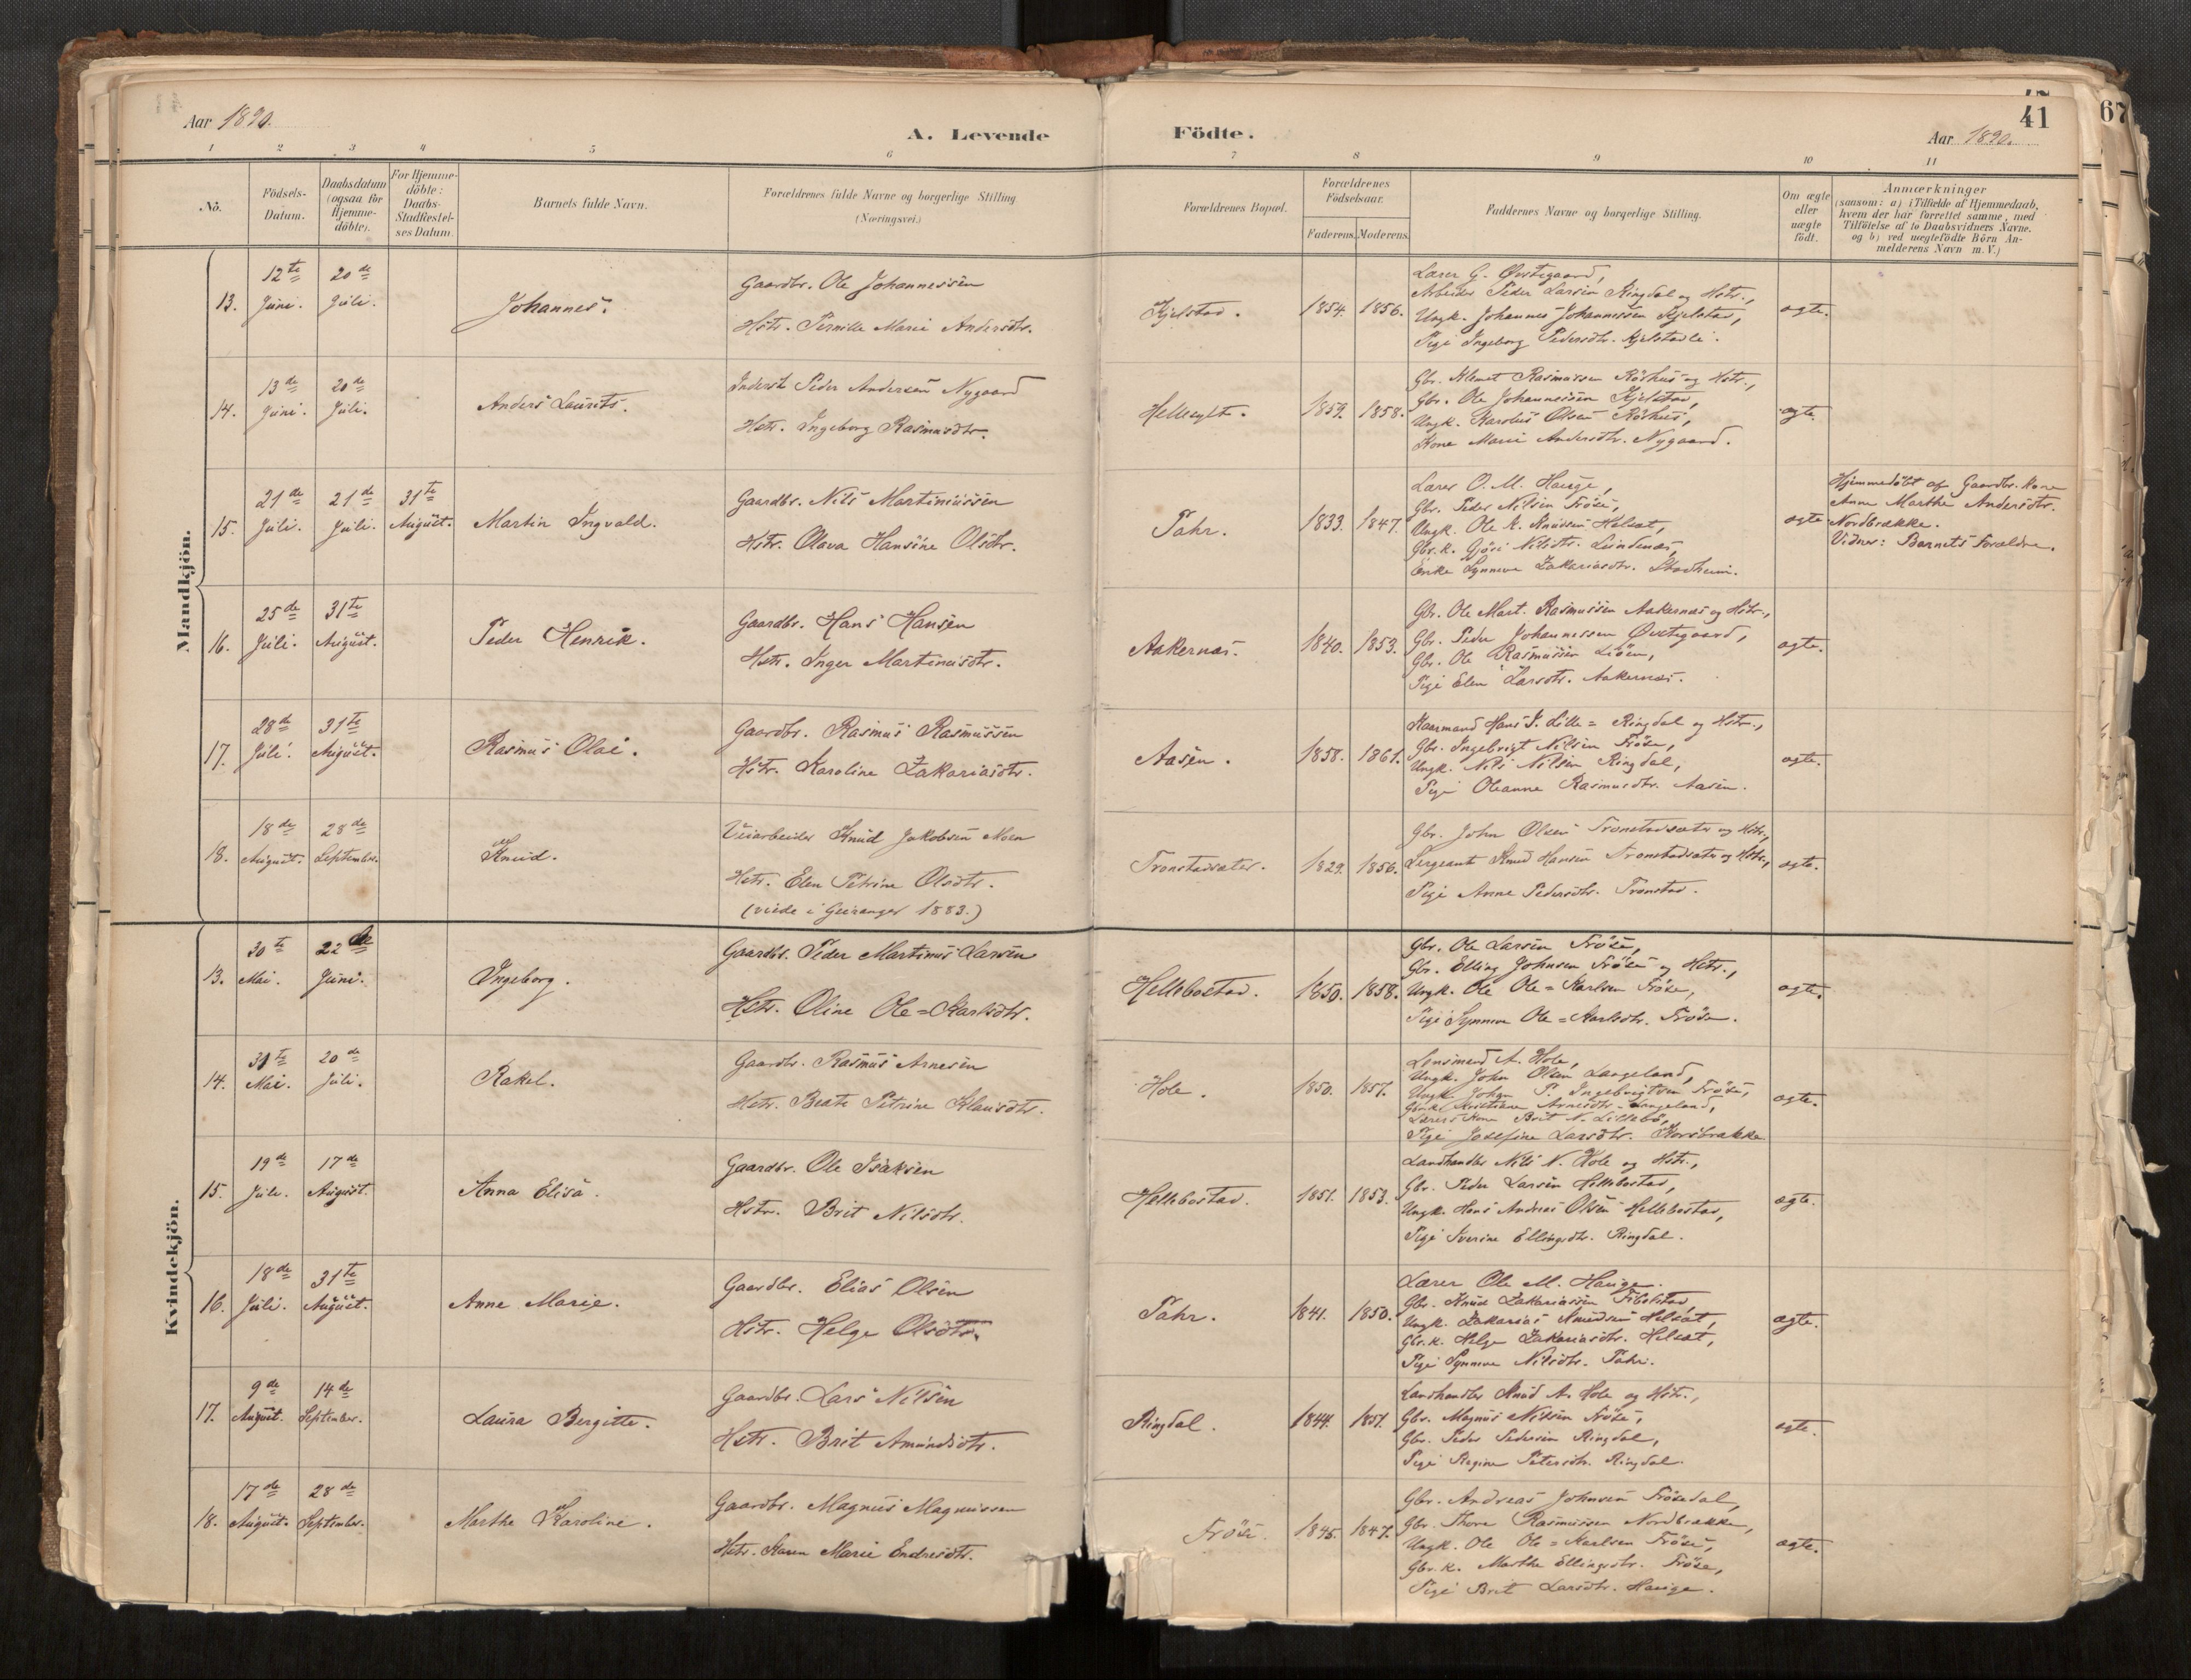 Aar 1890.
A. Levende
Födte.
Aar 1890.
41
67
1 2 3 4 5 6 7 8 9 10 11
No.
Födsels-
Datum.
Daabsdatum
(ogsaa for
Hjemme-
döbte).
For Hjemme-
döbte:
Daabs-
Stadfæstel-
ses Datum.
Barnets fulde Navn.
Forældrenes fulde Navne og borgerlige Stilling
(Næringsvei.)
Forældrenes Bopæl.
Forældrenes
Födselsaar.
Faderens. Moderens.
Faddernes Navne og borgerlige Stilling.
Om ægte
eller
uægte
födt.
Anmærkninger
(saasom: a) i Tilfælde af Hjemmedaab,
hvem der har forrettet samme, med
Tilföielse af to Daabsvidners Navne.
og b) ved uægtefödte Börn An-
melderens Navn m. V.)
Mandkjön.
13. 12te Juni. 20de Juli.
Johannes.
Gaardbr. Ole Johannessen
Hstr. Pernille Marie Andersdtr.
Kjelstad. 1854. 1856.
Lærer G. Øvstegaard,
Arbeider Peder Larsen Ringdal og Hstr.,
Ungk. Johannes Johannessen Kjelstad,
Pige Ingeborg Pedersdtr. Kjelstadli.
ægte.
14. 13de Juni. 20de Juli.
Anders Laurits.
Inderst Peder Andersen Nygaard
Hstr. Ingeborg Rasmusdtr.
Hellesylt. 1859. 1858.
Gbr. Klemet Rasmussen Røshus og Hstr.,
Gbr. Ole Johannessen Kjelstad,
Ungk. Karolus Olsen Røshus,
Kone Marie Andersdtr. Nygaard.
ægte.
15. 21de Juli. 21de Juli. 31te August.
Martin Ingvald.
Gaardbr. Nils Martinussen
Hstr. Olava Hansine Olsdtr.
Tahr. 1833. 1847.
Lærer O. M. Hauge,
Gbr. Peder Nilsen Frøse,
Ungk. Ole K. Knudsen Helsæt,
Gbr.k. Gjøri Nilsdtr. Lundenæs,
Enke Synneve Zakariasdtr. Stadheim.
ægte
Hjemmedöbt af Gaardbr. Kone
Anne Marthe Andersdtr.
Nordbrække.
Vidner: Barnets Forældre.
16. 25de Juli. 31te August.
Peder Henrik.
Gaardbr. Hans Hansen
Hstr. Inger Martinusdtr.
Aakernæs. 1840. 1853.
Gbr. Ole Mart. Rasmussen Aakernæs og Hstr.,
Gbr. Peder Johannessen Øvstegaard,
Gbr. Ole Rasmussen Liøen,
Pige Elen Larsdtr. Aakernæs.
ægte.
17. 28de Juli. 31te August.
Rasmus Olai.
Gaardbr. Rasmus Rasmussen
Hstr. Karoline Zakariasdtr.
Aasen. 1858. 1861.
Kaarmand Hans J. Lille=Ringdal og Hstr.,
Gbr. Ingebrigt Nilsen Frøse,
Ungk. Nils Nilsen Ringdal,
Pige Oleanne Rasmusdtr. Aasen.
ægte.
18. 18de August. 28de September.
Knud.
Veiarbeider Knud Jakobsen Moen
Hstr. Elen Petrine Olsdtr.
(viede i Geiranger 1883.)
Tronstadsæter. 1829. 1856.
Gbr. John Olsen Tronstadsæter og Hstr.,
Sergeant Knud Hansen Tronstadsæter og Hstr.,
Pige Anne Pedersdtr. Tronstad.
ægte.
Kvindekjön.
13. 30te Mai. 22de Juni.
Ingeborg.
Gaardbr. Peder Martinus Larsen
Hstr. Oline Ole=Karlsdtr.
Hellebostad. 1850. 1858.
Gbr. Ole Larsen Frøse,
Gbr. Elling Johnsen Frøse og Hstr.,
Ungk. Ole Ole=Karlsen Frøse,
Pige Synneve Ole=Karlsdtr. Frøse.
ægte.
14. 31te Mai. 20de Juli.
Rakel.
Gaardbr. Rasmus Arnesen
Hstr. Beate Petrine Klausdtr.
Hole. 1850. 1857.
Lensmand A. Hole,
Ungk. John Olsen Langeland,
Ungk. Johan P. Ingebrigtsen Frøse,
Gbr.k. Kristiane Arnesdtr. Langeland,
Lærers Kone Brit N. Lillebö,
Pige Josefine Larsdtr. Korsbrække
ægte.
15. 19de Juli. 17de August.
Anna Elisa.
Gaardbr. Ole Isaksen
Hstr. Brit Nilsdtr.
Hellebostad. 1851. 1853.
Landhandler Nils N. Hole og Hstr.,
Gbr. Peder Larsen Hellebostad,
Ungk. Hans Andreas Olsen Hellebostad,
Pige Iverine Ellingsdtr. Ringdal.
ægte.
16. 18de Juli. 31te August.
Anne Marie.
Gaardbr. Elias Olsen
Hstr. Helge Olsdtr.
Tahr. 1841. 1850.
Lærer Ole M. Hauge.
Gbr. Knud Zakariassen Fibelstad,
Ungk. Zakarias Knudsen Helsæt,
Gbr.k. Helge Zakariasdtr. Helsæt,
Pige Synneve Nilsdtr. Tahr.
ægte.
17. 9de August. 14de September.
Laura Bergitte.
Gaardbr. Lars Nilsen
Hstr. Brit Amundsdtr.
Ringdal. 1844. 1851.
Landhandler Knud A. Hole og Hstr.,
Gbr. Magnus Nilsen Frøse,
Gbr. Peder Pedersen Ringdal,
Pige Regine Petersdtr. Ringdal.
ægte.
18. 17de August. 28de September.
Marthe Karoline.
Gaardbr. Magnus Magnussen
Hstr. Karen Marie Endresdtr.
Frøse. 1845. 1847.
Gbr. Andreas Johnsen Frøsedal,
Gbr. Thore Rasmussen Nordbrække,
Ungk. Ole Ole=Karlsen Frøse,
Gbr.k. Marthe Ellingsdtr. Frøse,
Pige Brit Larsdtr. Hauge.
ægte.